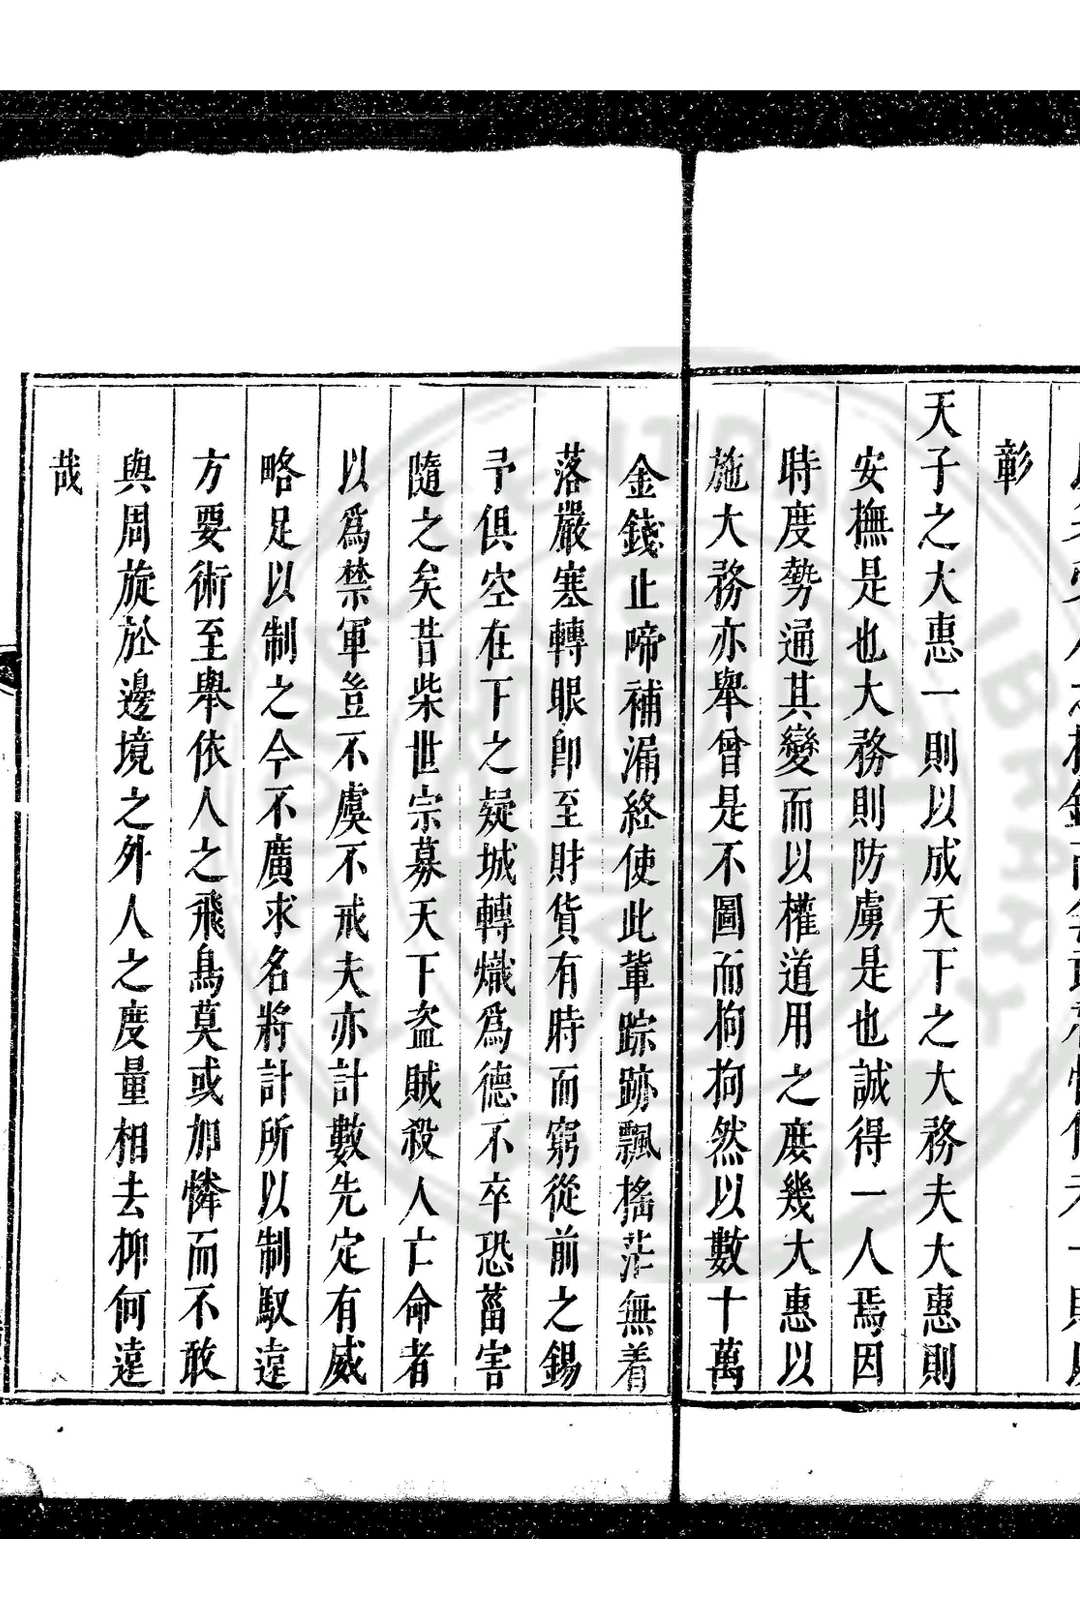 彰
天子之大惠一則以成天下之大務夫大惠則
安撫是也大務則防虜是也誠得一人焉因
時度勢通其變而以權道用之庶幾大惠以
施大務亦舉曾是不圖而拘拘然以數十萬
金錢止啼補漏終使此輩踪跡飄搖茫無着
落嚴塞轉眼卽至財貨有時而窮從前之錫
予俱空在下之疑城轉熾爲德不卒恐菑害
隨之矣昔柴世宗募天下盜賊殺人亡命者
以爲禁軍豈不虞不戒夫亦計數先定有威
略足以制之今不廣求名將計所以制馭遠
方要術至舉依人之飛鳥莫或加憐而不敢
與周旋於邊境之外人之度量相去抑何遠
哉